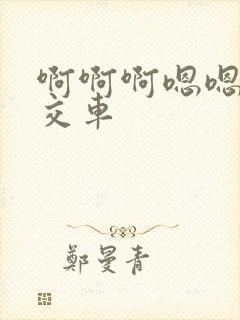 啊啊啊嗯嗯
交车
鄭曼青